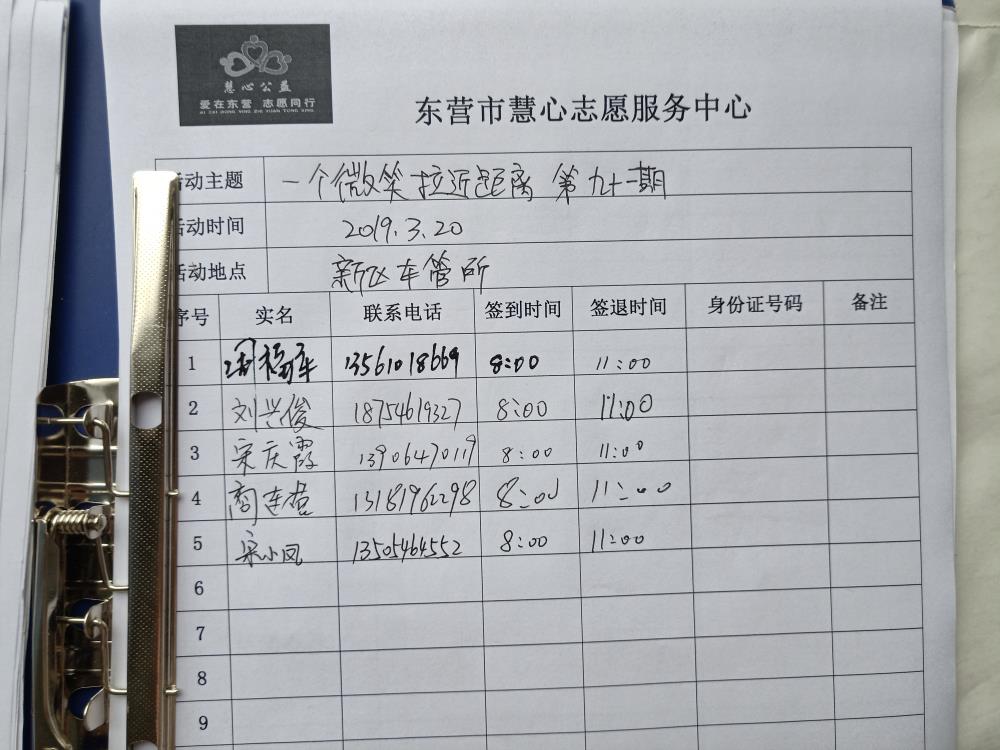 慧心公益
爱在东营 志愿同行
AI ZAI DONG YING ZHI YUAN TONG XING
东营市慧心志愿服务中心
活动主题 一个微笑拉近距离 第九十一期
活动时间 2019.3.20
活动地点 新区车管所
序号 实名 联系电话 签到时间 签退时间 身份证号码 备注
1 13561018669 8:00 11:00
2 刘兴俊 18754619327 8:00 11:00
3 宋庆霞 13906470119 8:00 11:00
4 商连营 13181962298 8:00 11:00
5 宋小凤 13505464552 8:00 11:00
6
7
8
9